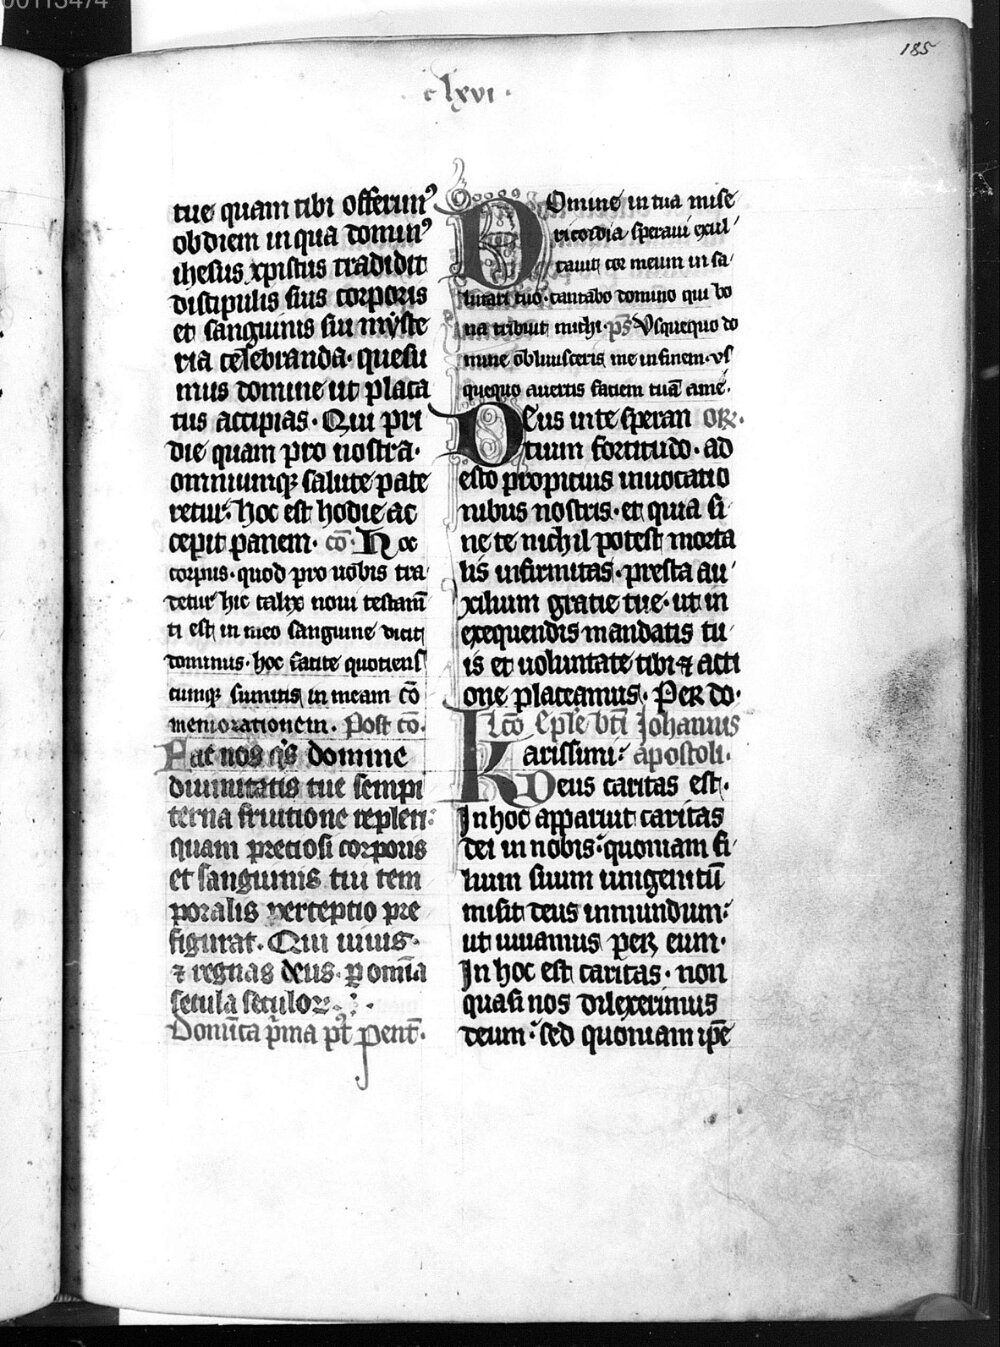 00113474
185
clxvi·
tue quam tibi offerimꝰ
ob diem in qua dominꝰ
ihesus xpistus tradidit
discipulis suis corporis
et sanguinis sui myste
ria celebranda· quesu
mus domine ut placa
tus accipias· Qui pri
die quam pro nostra·
omniumqꝫ salute pate
retur· hoc est hodie ac
cepit panem· cō· Hoc
corpus· quod pro uobis tra
detur hic calix noui testam̄
ti est in meo sanguine dicit
dominus· hoc facite quotiens
cumqꝫ sumitis in meam cō
memorationem. Post cō.
Fac nos q̄s domine
diuinitatis tue sempi
terna fruitione repleri·
quam preciosi corporis
et sanguinis tui tem
poralis perceptio pre
figurat. Qui uiuis·
⁊ regnas deus· ꝑ omīa
secula seculoꝝ·
Domīca p̄ma pt̄ Pent̄·
Domine in tua mise
ricordia speraui exul
tauit cor meum in sa
lutari tuo· cantabo domino qui bo
na tribuit michi· p̄s Vsquequo do
mine obliuisceris me in finem· us
quequo auertis faciem tuā a me·
Deus in te speran or̄·
tium fortitudo· ad
esto propicius inuocatio
nibus nostris· et quia si
ne te nichil potest morta
lis infirmitas· presta au
xilium gratie tue· ut in
exequendis mandatis tu
is et uoluntate tibi ⁊ acti
one placeamus· Per do·
Lc̄o Ep̄le bt̄i Johannis
Karissimi· apostoli·
Deus caritas est·
In hoc apparuit caritas
dei in nobis· quoniam fi
lium suum unigenitū
misit deus in mundum·
ut uiuamus per eum·
In hoc est caritas· non
quasi nos dilexerimus
deum· sed quoniam ip̄e